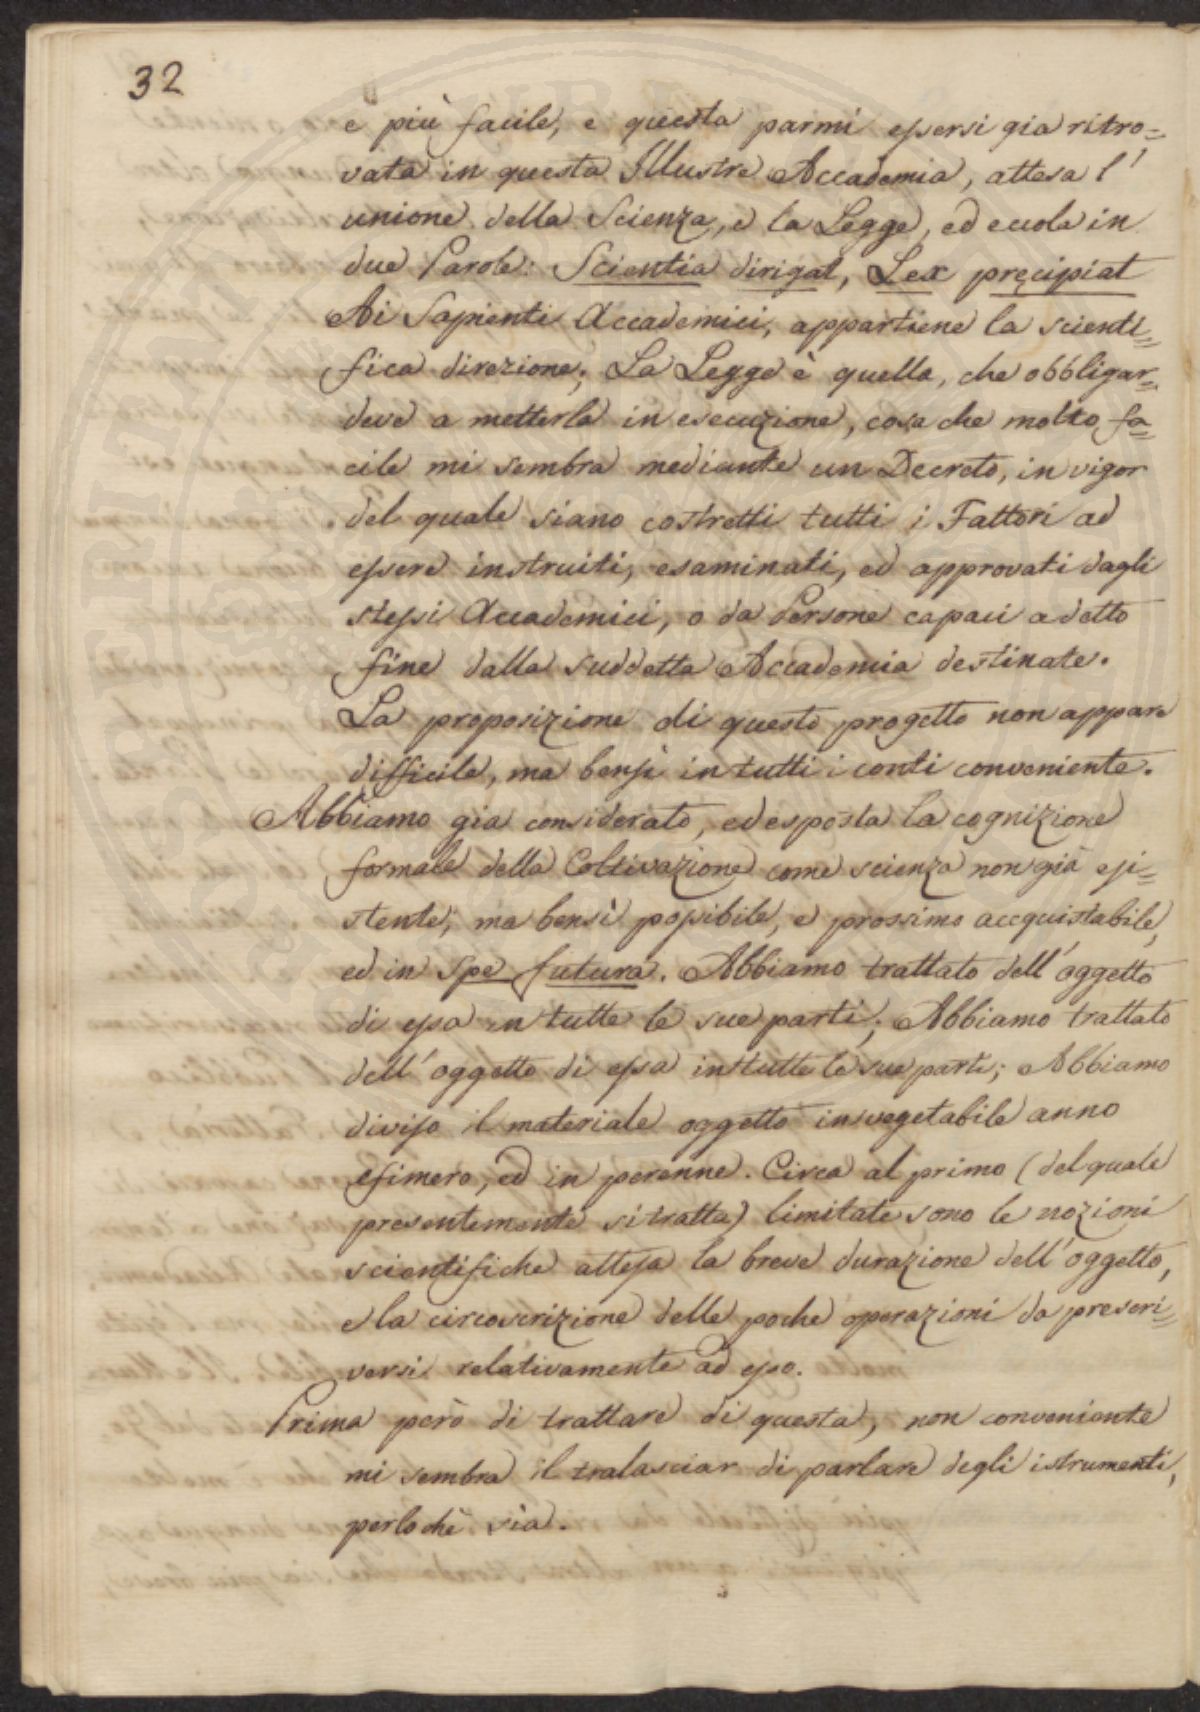 32
e più facile, e questa parmi essersi gia ritro=
vata in questa Illustre Accademia, attesa l'
unione della Scienza, e la Legge, ed eccola in
due Parole: Scientia dirigat, Lex pręcipiat
Ai Sapienti Accademici, appartiene la scienti=
fica direzione; La Legge è quella, che obbligar=
deve a metterla in esecuzione, cosa che molto fa=
cile mi sembra mediante un Decreto, in vigor
del quale siano costretti tutti i Fattori ad
essere instruiti, esaminati, ed approvati dagli
stessi Accademici, o da Persone capaci a detto
fine dalla suddetta Accademia destinate.
La proposizione di questo progetto non appare
difficile, ma bensi in tutti i conti conveniente.
Abbiamo gia considerato, ed esposta la cognizione
formale della Coltivazione come scienza non già esi=
stente, ma bensì possibile, e prossimo accquistabile,
ed in spe futura. Abbiamo trattato dell'oggetto
di essa in tutte le sue parti; Abbiamo trattato
dell'oggetto di essa in tutte le sue parti; Abbiamo
diviso il materiale oggetto in vegetabile anno
efimero, ed in perenne. Circa al primo (del quale
presentemente si tratta) limitate sono le nozioni
scientifiche attesa la breve durazione dell'oggetto,
e la circoscrizione delle poche operazioni da prescri=
versi relativamente ad esso.
Prima però di trattare di questa, non conveniente
mi sembra il tralasciar di parlare degli istrumenti,
perlochè sia.